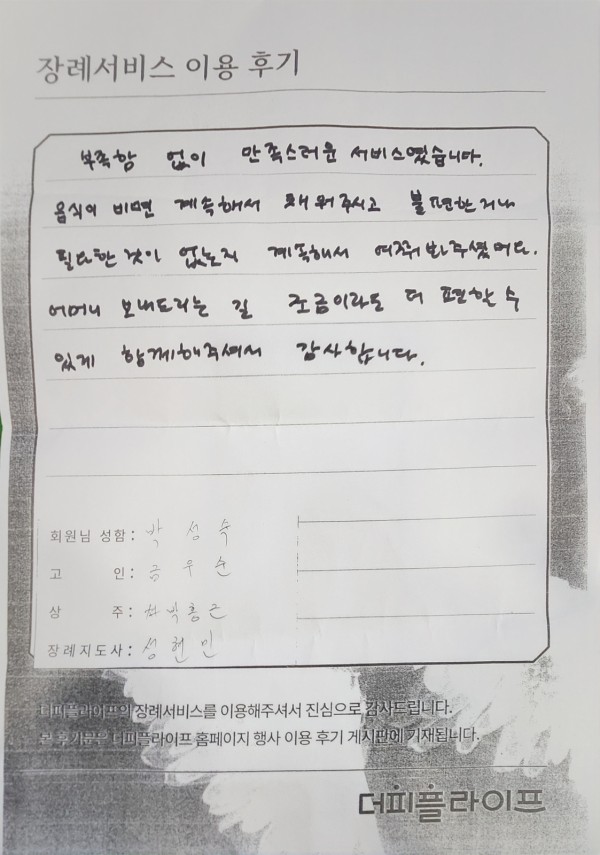 장례서비스 이용 후기
부족함 없이 만족스러운 서비스였습니다.
음식이 비면 계속해서 채워주시고 불편한거나
필요한 것이 없는지 계속해서 여쭤봐주셨어요.
어머니 보내드리는 길 조금이라도 더 편할 수
있게 함께해주셔서 감사합니다.
회원님 성함 : 박성숙
고 인 : 금우순
상 주 : 박홍근
장례지도사 : 성현민
더피플라이프의 장례서비스를 이용해주셔서 진심으로 감사드립니다.
본 후기문은 더피플라이프 홈페이지 행사 이용 후기 게시판에 기재됩니다.
더피플라이프